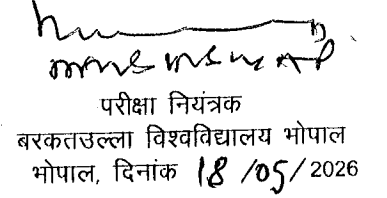 परीक्षा नियंत्रक
बरकतउल्ला विश्वविद्यालय भोपाल
भोपाल, दिनांक 18/05/2026